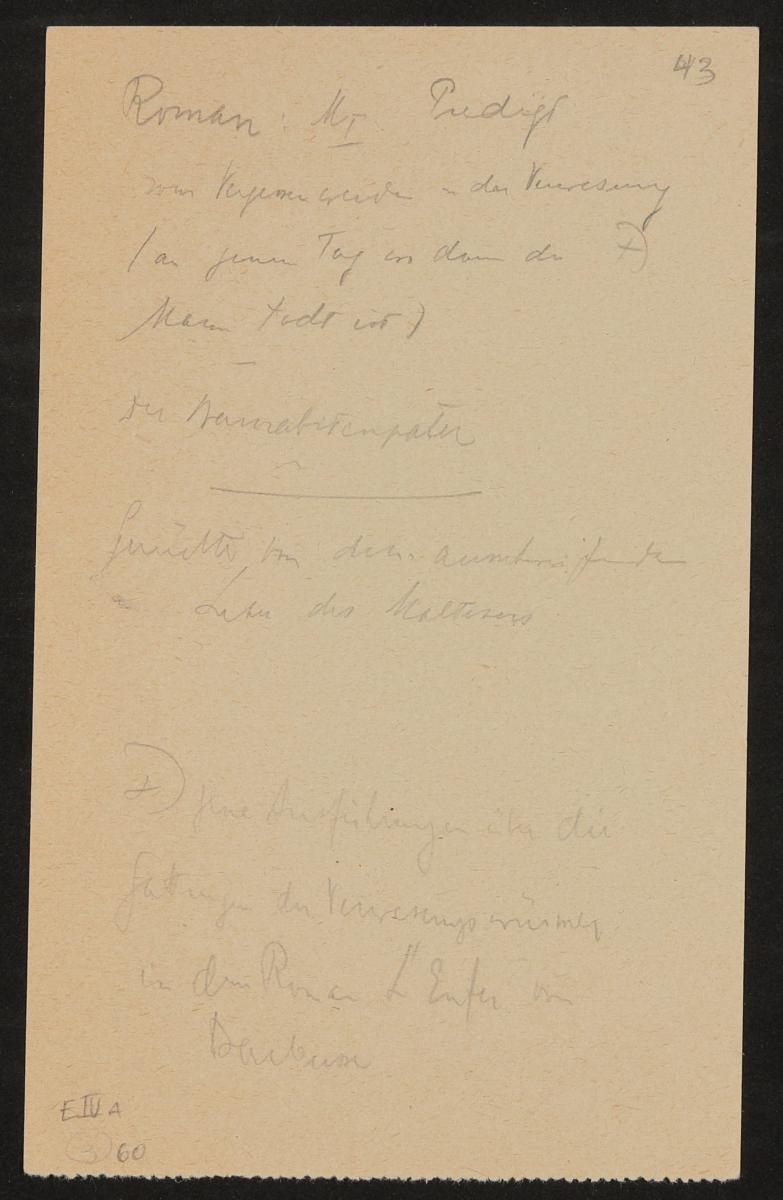 43
Roman: M I Predigt
vom Vergessenwerden u der Verwesung
(an jenem Tag wo dann der +)
Mann todt ist)
Der Barnabitenpater
Gerüchte von dem ausschweifenden
Leben des Maltesers
+) jene Ausführungen über die
Gattungen der Verwesungswürmer
in dem Roman L'Enfer von
Barbusse
E IV A
60